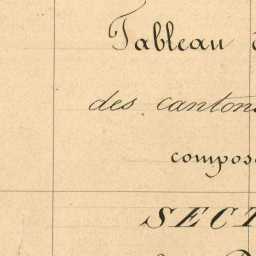 Tableau
des cantons
compos
SECT